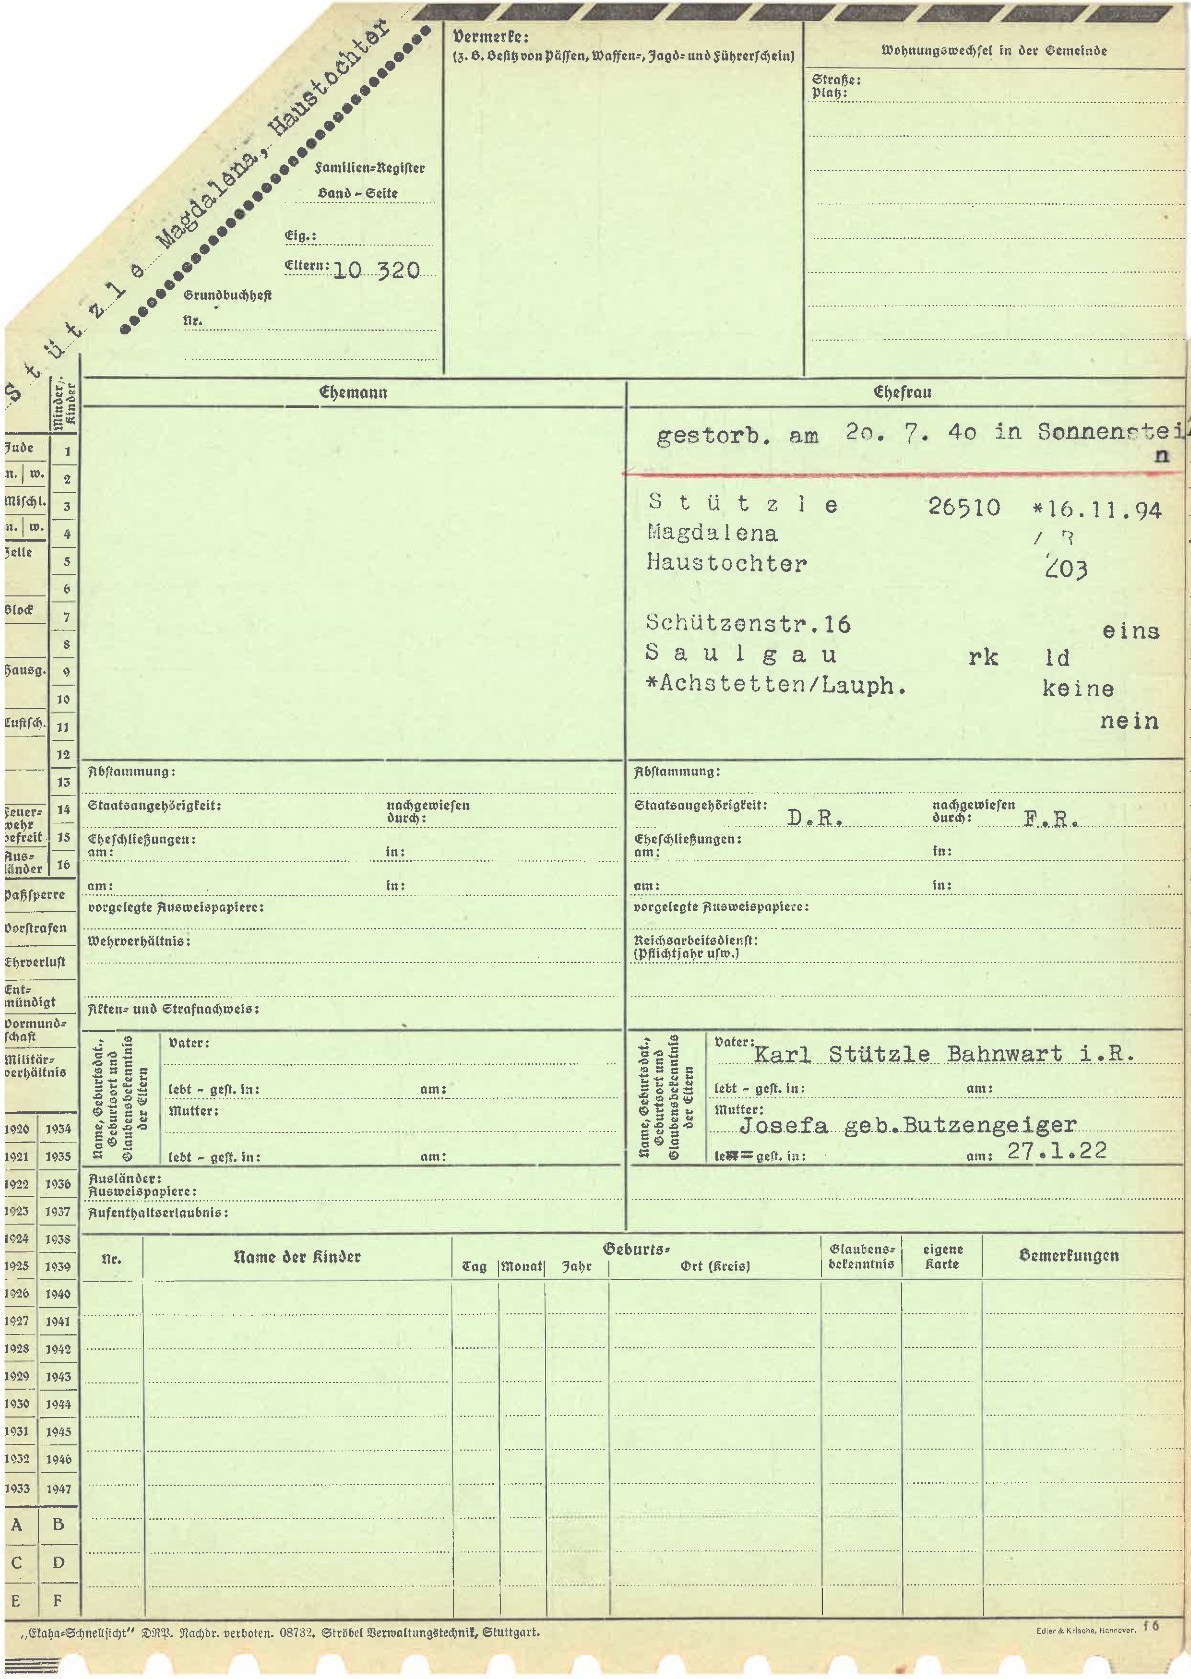 Stützle Magdalena, Haustochter
Familien-Register
Band - Seite
Eig.:
Eltern: 10 320
Grundbuchheft
Nr.
Vermerke:
(z. B. Besitz von Pässen, Waffen-, Jagd- und Führerschein)
Wohnungswechsel in der Gemeinde
Straße:
Platz:
Minder. Kinder
Ehemann
Ehefrau
gestorb. am 20. 7. 40 in Sonnenstei
n
Stützle 26510 *16.11.94
Magdalena
Haustochter 203
Schützenstr.16 eins
Saulgau rk ld
*Achstetten/Lauph. keine
nein
Jude
m. w.
Mischl.
m. w.
Zelle
Block
Hausg.
Luftsch.
Feuer-
wehr
befreit
Aus-
länder
1
2
3
4
5
6
7
8
9
10
11
12
13
14
15
16
Paßsperre
Vorstrafen
Ehrverlust
Ent-
mündigt
Vormund-
schaft
Militär-
verhältnis
Abstammung:
Staatsangehörigkeit: nachgewiesen
durch:
Eheschließungen:
am: in:
am: in:
vorgelegte Ausweispapiere:
Wehrverhältnis:
Akten- und Strafnachweis:
Abstammung:
Staatsangehörigkeit: D.R. nachgewiesen
durch: F.R.
Eheschließungen:
am: in:
am: in:
vorgelegte Ausweispapiere:
Reichsarbeitsdienst:
(Pflichtjahr usw.)
Name, Geburtsdat.,
Geburtsort und
Glaubensbekenntnis
der Eltern
Vater:
lebt - gest. in: am:
Mutter:
lebt - gest. in: am:
Name, Geburtsdat.,
Geburtsort und
Glaubensbekenntnis
der Eltern
Vater: Karl Stützle Bahnwart i.R.
lebt - gest. in: am:
Mutter:
Josefa geb.Butzengeiger
gest. in: am: 27.1.22
Ausländer:
Ausweispapiere:
Aufenthaltserlaubnis:
1920 1934
1921 1935
1922 1936
1923 1937
1924 1938
1925 1939
1926 1940
1927 1941
1928 1942
1929 1943
1930 1944
1931 1945
1932 1946
1933 1947
A B
C D
E F
Nr.
Name der Kinder
Geburts-
Tag Monat Jahr Ort (Kreis)
Glaubens-
bekenntnis
eigene
Karte
Bemerkungen
„Ekaha-Schnellsicht“ DRP. Nachdr. verboten. 08732. Ströbel Verwaltungstechnik, Stuttgart.
Edler & Krische, Hannover. f 6